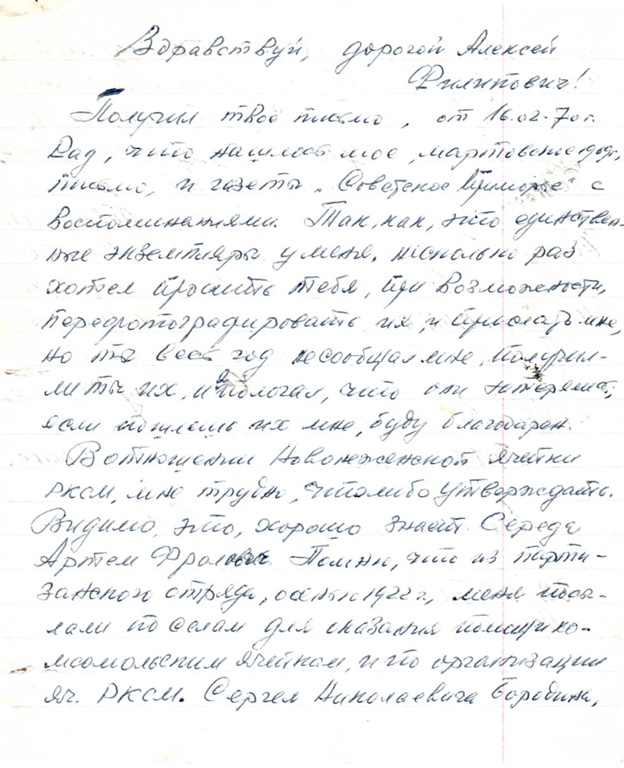 Здравствуй, дорогой Алексей
Филиппович!
Получил твоё письмо, от 16.02-70г.
Рад, что нашлось мое, мартовское 69г,
письмо, и газеты "Советское Приморье" с
воспоминаниями. Так, как, это единствен-
ные экземпляры у меня. несколько раз
хотел просить тебя, при возможности,
перефотографировать их, и прислать мне,
но ты весь год несообщал мне, получил-
ли ты их, и я пологал, что они затеряны,
если пошлешь их мне, буду благодарен.
В отношении Новонеженской ячейки
РКСМ, мне трудно, чтолибо утверждать.
Видимо, это, хорошо знает Середа
Артем Фролович. Помню, что из парти-
занского отряда, осенью 1922 г, меня посы-
лали по селам для оказания помощи ко-
мсомольским ячейкам, и по организации
яч. РКСМ. Сергея Николаевича Бородина,